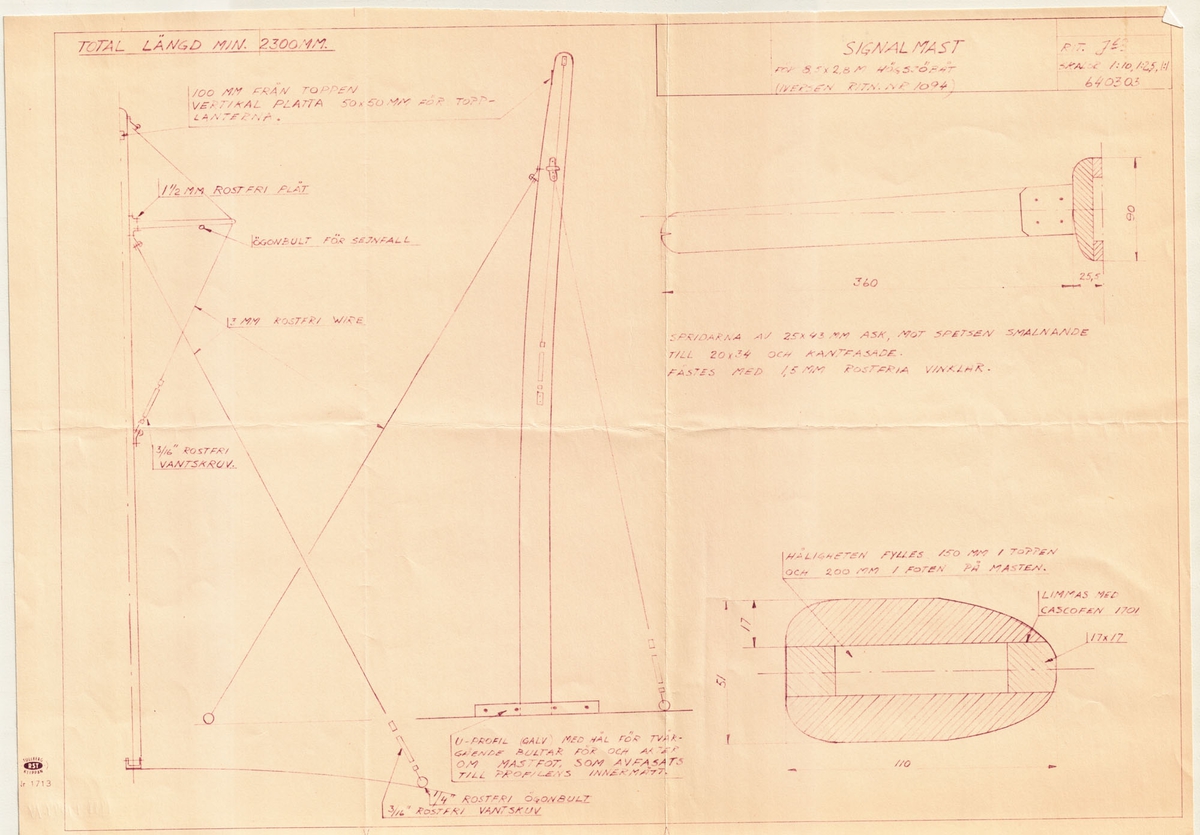 TOTAL LÄNGD MIN. 2300MM.
SIGNALMAST
8,5x2,8 M HÖGSJÖBÅT
(IVERSEN RITN. NR 1094)
RIT.
SKALOR 1:10, 1:2,5, 1:1
640303
100 MM FRÅN TOPPEN
VERTIKAL PLATTA 50x50 MM FÖR TOPP-
LANTERNA.
1 1/2 MM ROSTFRI PLÅT
ÖGONBULT FÖR SEJNFALL
MM ROSTFRI WIRE
3/16" ROSTFRI
VANTSKRUV.
90
25,5
360
SPRIDARNA AV 25x43 MM ASK, MOT SPETSEN SMALNANDE
TILL 20x34 OCH KANTFASADE.
FÄSTES MED 1,5 MM ROSTFRIA VINKLAR.
HÅLIGHETEN FYLLES 150 MM I TOPPEN
OCH 200 MM I FOTEN PÅ MASTEN.
LIMMAS MED
CASCOFEN 1701
17x17
17
51
110
U-PROFIL (GALV) MED HÅL FÖR TVÄR-
GÅENDE BULTAR FÖR OCH AKTER
OM MASTFOT, SOM AVFASATS
TILL PROFILENS INNERMÅTT.
1/4" ROSTFRI ÖGONBULT
3/16" ROSTFRI VANTSKUV
1713